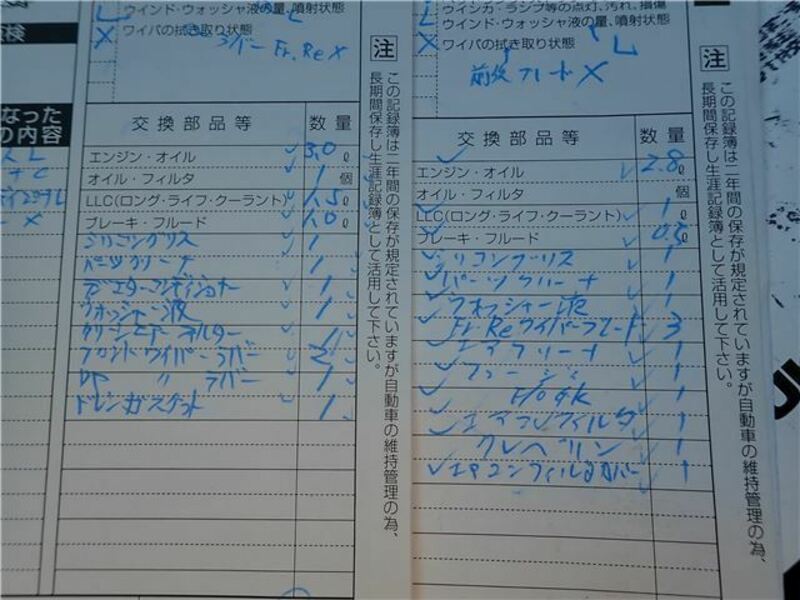 ウインド・ウォッシャ液の量、噴射状態
ワイパの拭き取り状態
ラバー Fr. Re X
X
検
なった
の内容
交換部品等 数量
エンジン・オイル 3.0 ℓ
オイル・フィルタ 1 個
LLC(ロング・ライフ・クーラント) 1.5 ℓ
ブレーキ・フルード 1.0 ℓ
シリコングリス 1
パーツクリーナ 1
ラジエターコンディショナー 1
ウオッシャー液 1
クリーンエアーフィルター 1
フロントワイパーラバー 2
リア 〃 ラバー 1
ドレンガスケット 1
注
この記録簿は二年間の保存が規定されていますが自動車の維持管理の為、
長期間保存し生涯記録簿として活用して下さい。
ウインカ・ランプ等の点灯、汚れ、損傷
ウインド・ウォッシャ液の量、噴射状態
L
X
ワイパの拭き取り状態
L
前後ブレードX
交換部品等 数量
エンジン・オイル 2.8 ℓ
オイル・フィルタ 個
LLC(ロング・ライフ・クーラント) 1 ℓ
ブレーキ・フルード 0.5 ℓ
シリコングリス 1
パーツクリーナ 1
ウオッシャー液 1
Fr. Reワイパーブレード 3
エアクリーナ 1
1
1
エアコンフィルタ 1
クレベリン 1
エアコンフィルタカバー 1
注
この記録簿は二年間の保存が規定されていますが自動車の維持管理の為、
長期間保存し生涯記録簿として活用して下さい。